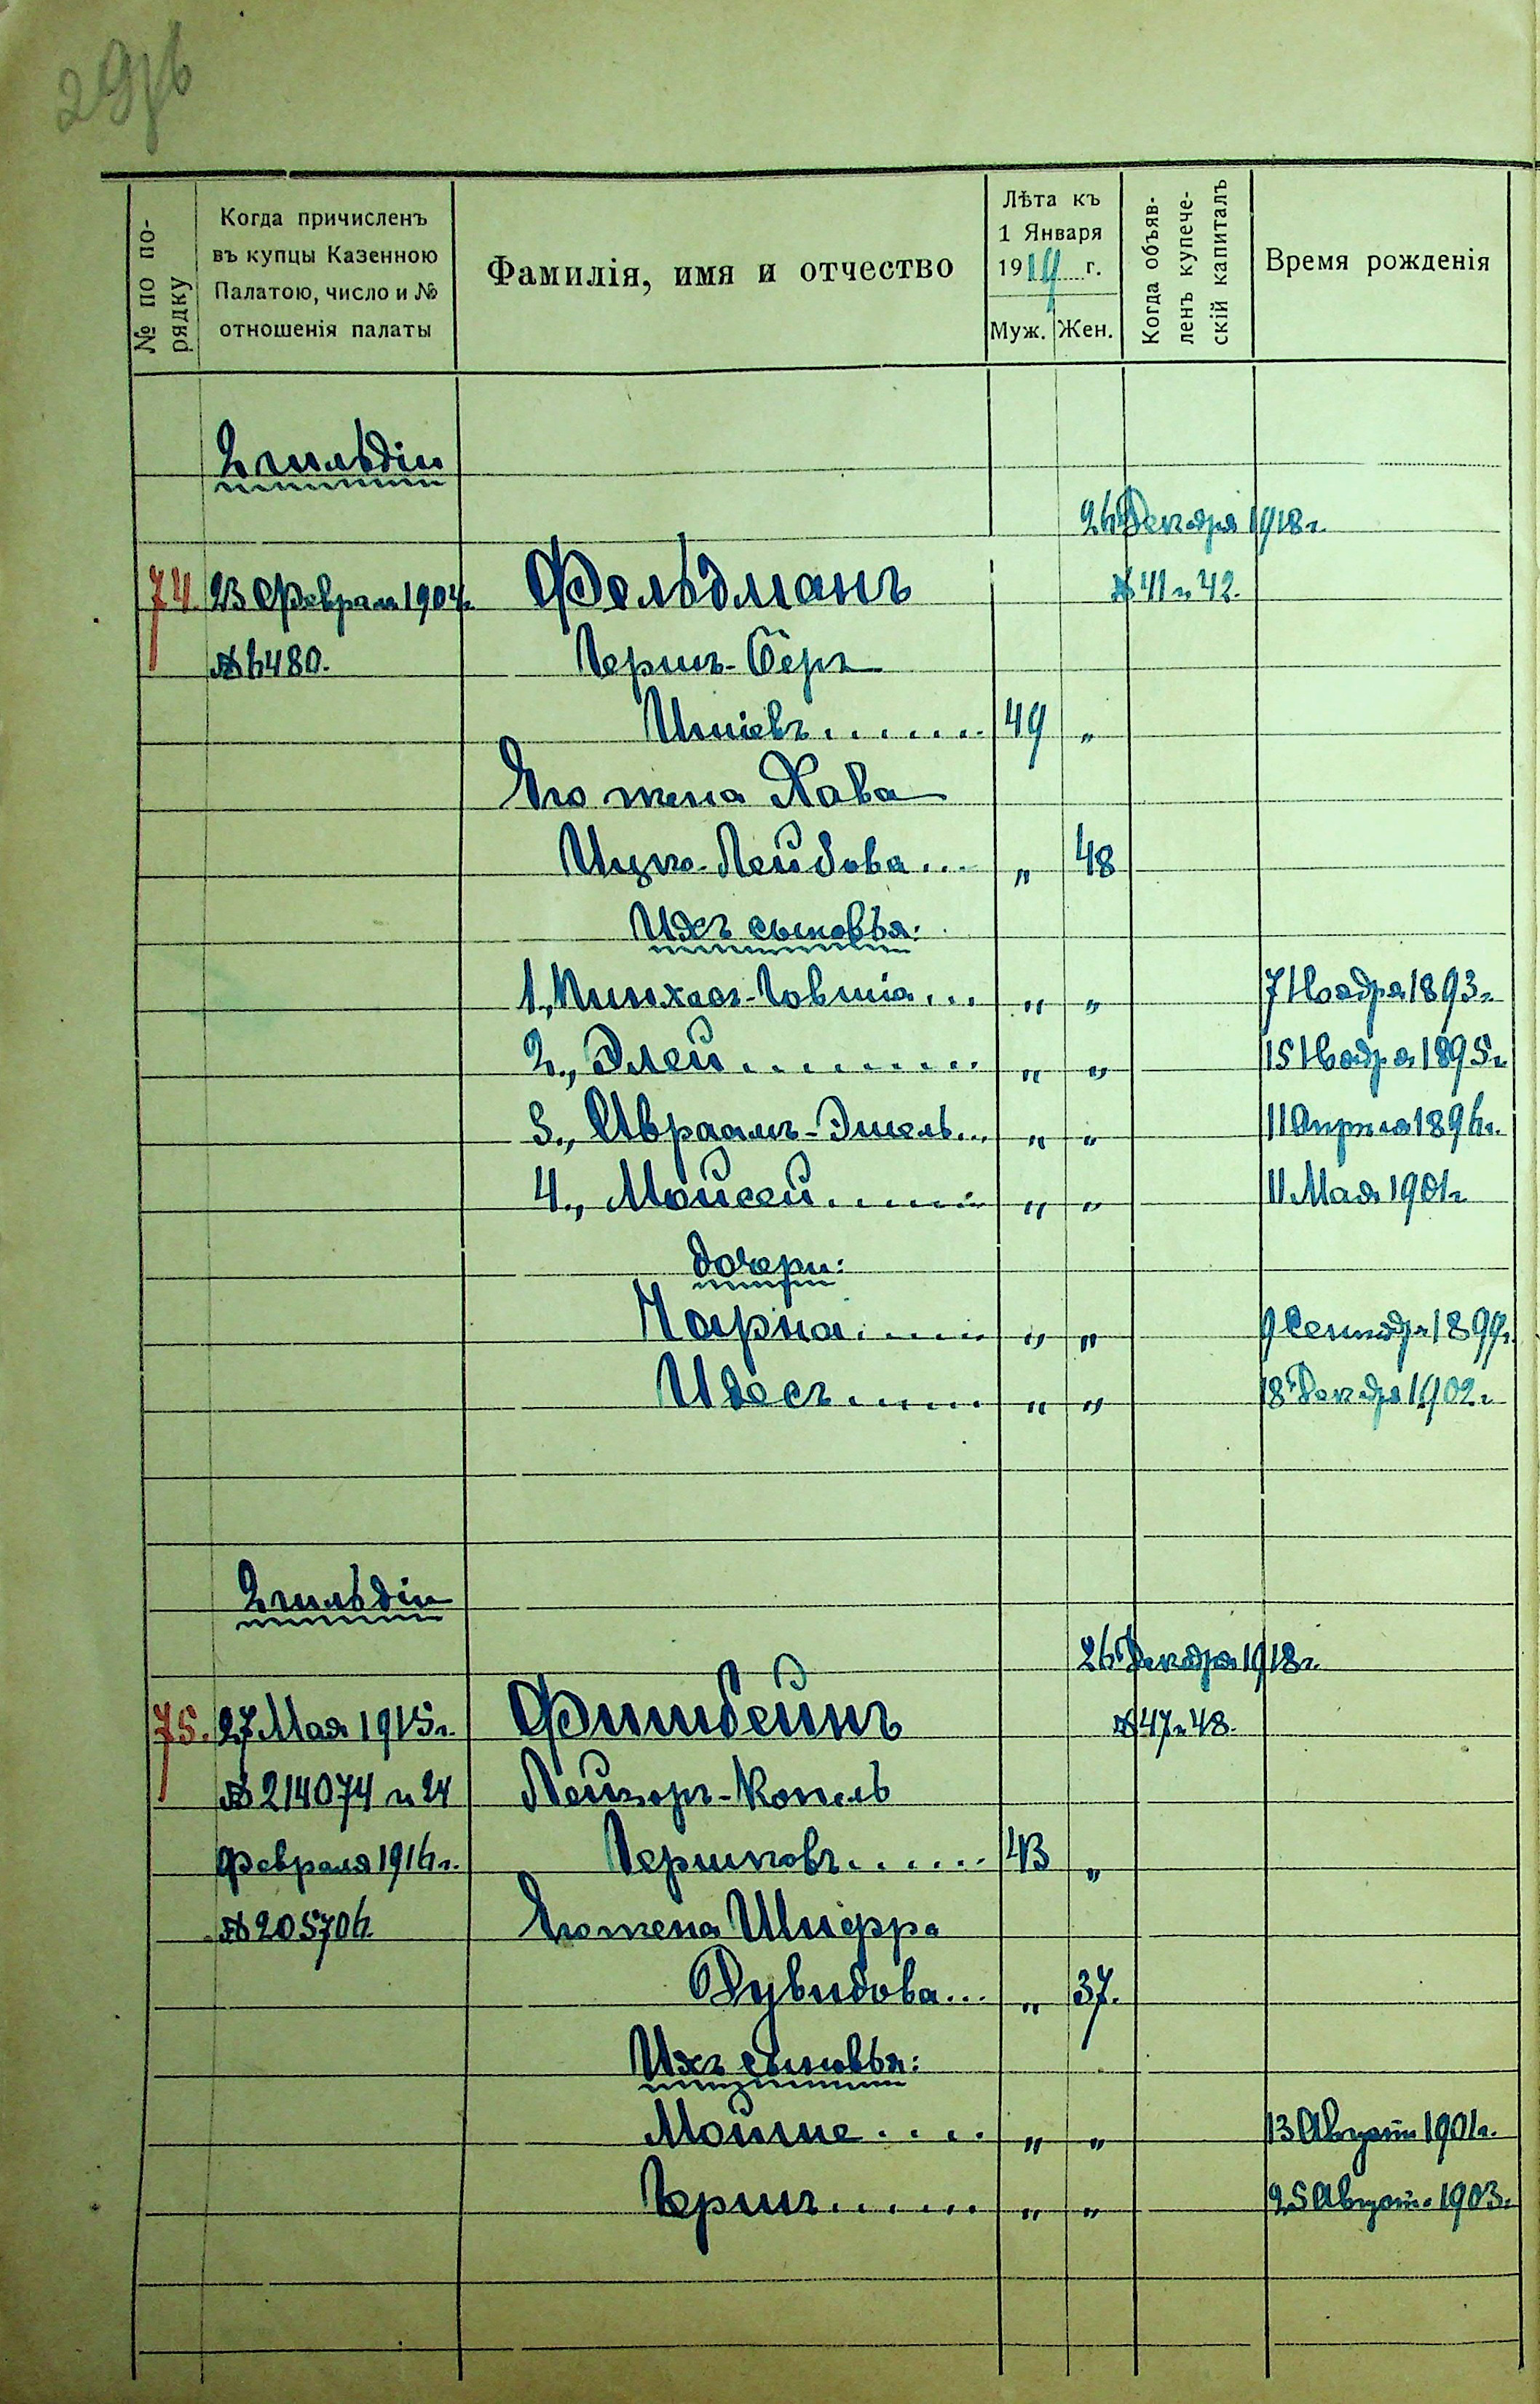 29об
№ по по-
рядку
Когда причисленъ
въ купцы Казенною
Палатою, число и №
отношенія палаты
Фамилія, имя и отчество
Лѣта къ
1 Января
1919 г.
Муж. Жен.
Когда объяв-
ленъ купече-
скій капиталъ
Время рожденія
2 гильдіи
26 Декабря 1918 г.
74. 23 Февраля 1904 г. Фельдманъ № 41 и 42.
№ 6480. Гершъ-Беръ
49 "
Его жена Хава
Ицко-Лейбова... " 48
Ихъ сыновья:
1., Пинхасъ-Говшіа... " " 7 Ноября 1893 г.
2., Элей......... " " 15 Ноября 1895 г.
3., Авраамъ-Эшель... " " 11 Апрѣля 1896 г.
4., Мойсей...... " " 11 Мая 1901 г.
дочери:
Чарна...... " " 9 Сентября 1899 г.
Идесъ...... " " 18 Декабря 1902 г.
2 гильдіи
26 Декабря 1918 г.
75. 27 Мая 1915 г. Фишбейнъ № 47 и 48.
№ 214074 и 24 Лейзоръ-Копель
Февраля 1916 г. Гершковъ...... 43 "
№ 205706. Его жена Шифра
Дувидова... " 37.
Ихъ сыновья:
Мойше.... " " 13 Августа 1901 г.
Гершъ...... " " 25 Августа 1903 г.